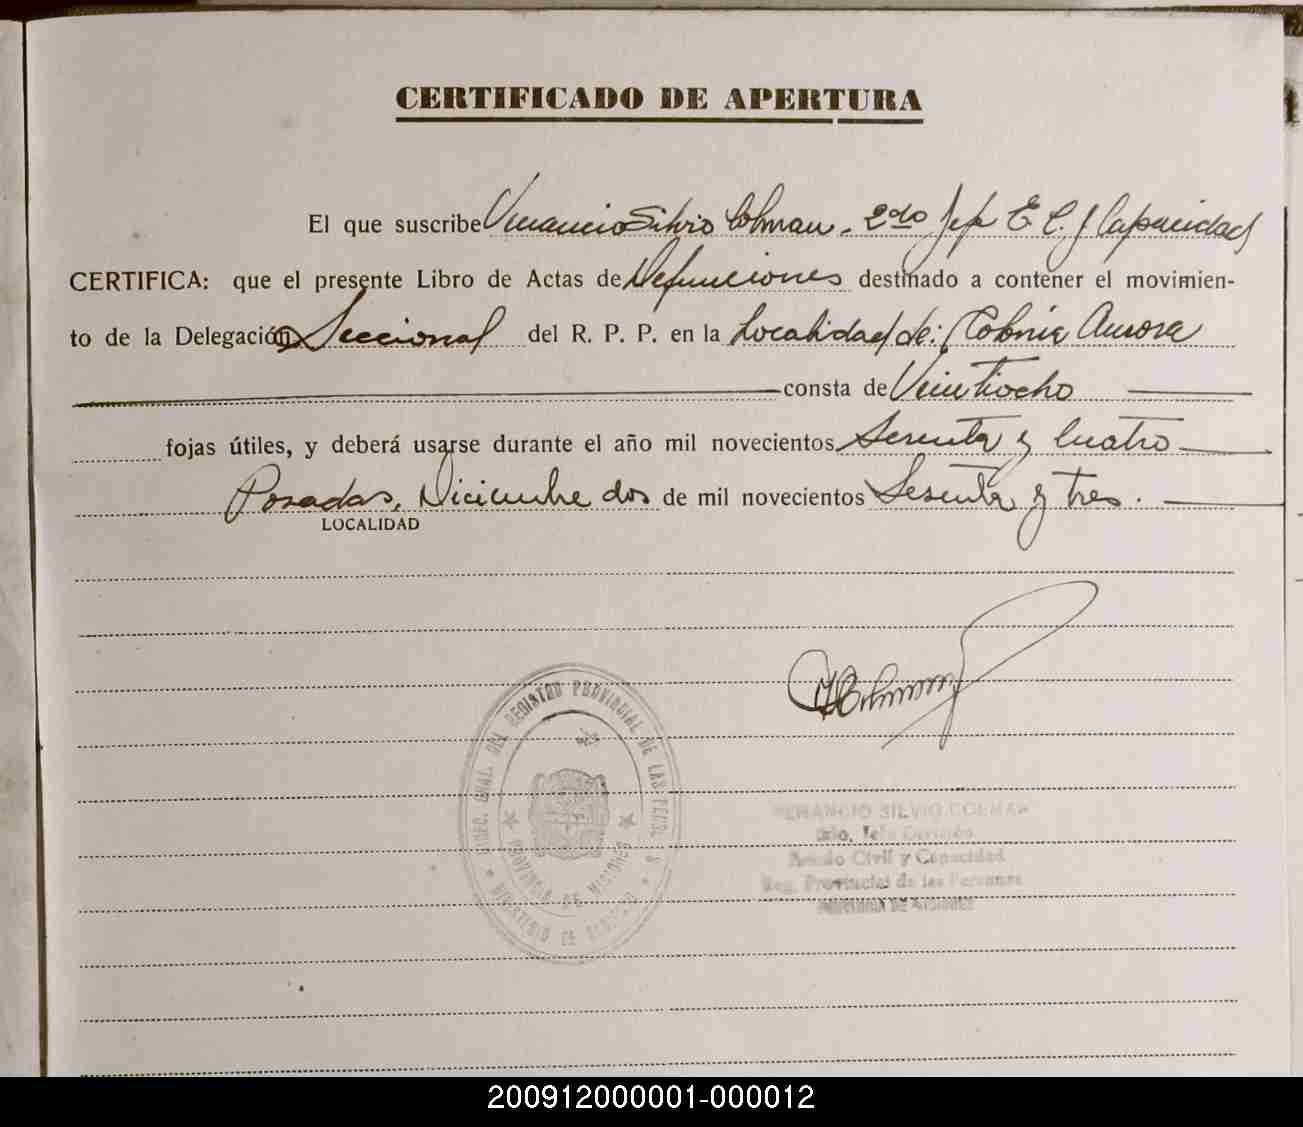 CERTIFICADO DE APERTURA
El que suscribe Venancio Silvio Colman. 2do Jefe E C. y Capacidad
CERTIFICA: que el presente Libro de Actas de Defunciones destinado a contener el movimien-
to de la Delegación Seccional del R. P. P. en la Localidad de: Colonia Aurora
consta de Veintiocho
fojas útiles, y deberá usarse durante el año mil novecientos Sesenta y Cuatro
Posadas, Diciembre dos de mil novecientos Sesenta y tres.
LOCALIDAD
DIREC. GRAL. DEL REGISTRO PROVINCIAL DE LAS PERS.
PROVINCIA DE MISIONES
MINISTERIO DE GOBIERNO
VENANCIO SILVIO COLMAN
2do. Jefe División
Estado Civil y Capacidad
Reg. Provincial de las Personas
PROVINCIA DE MISIONES
200912000001-000012